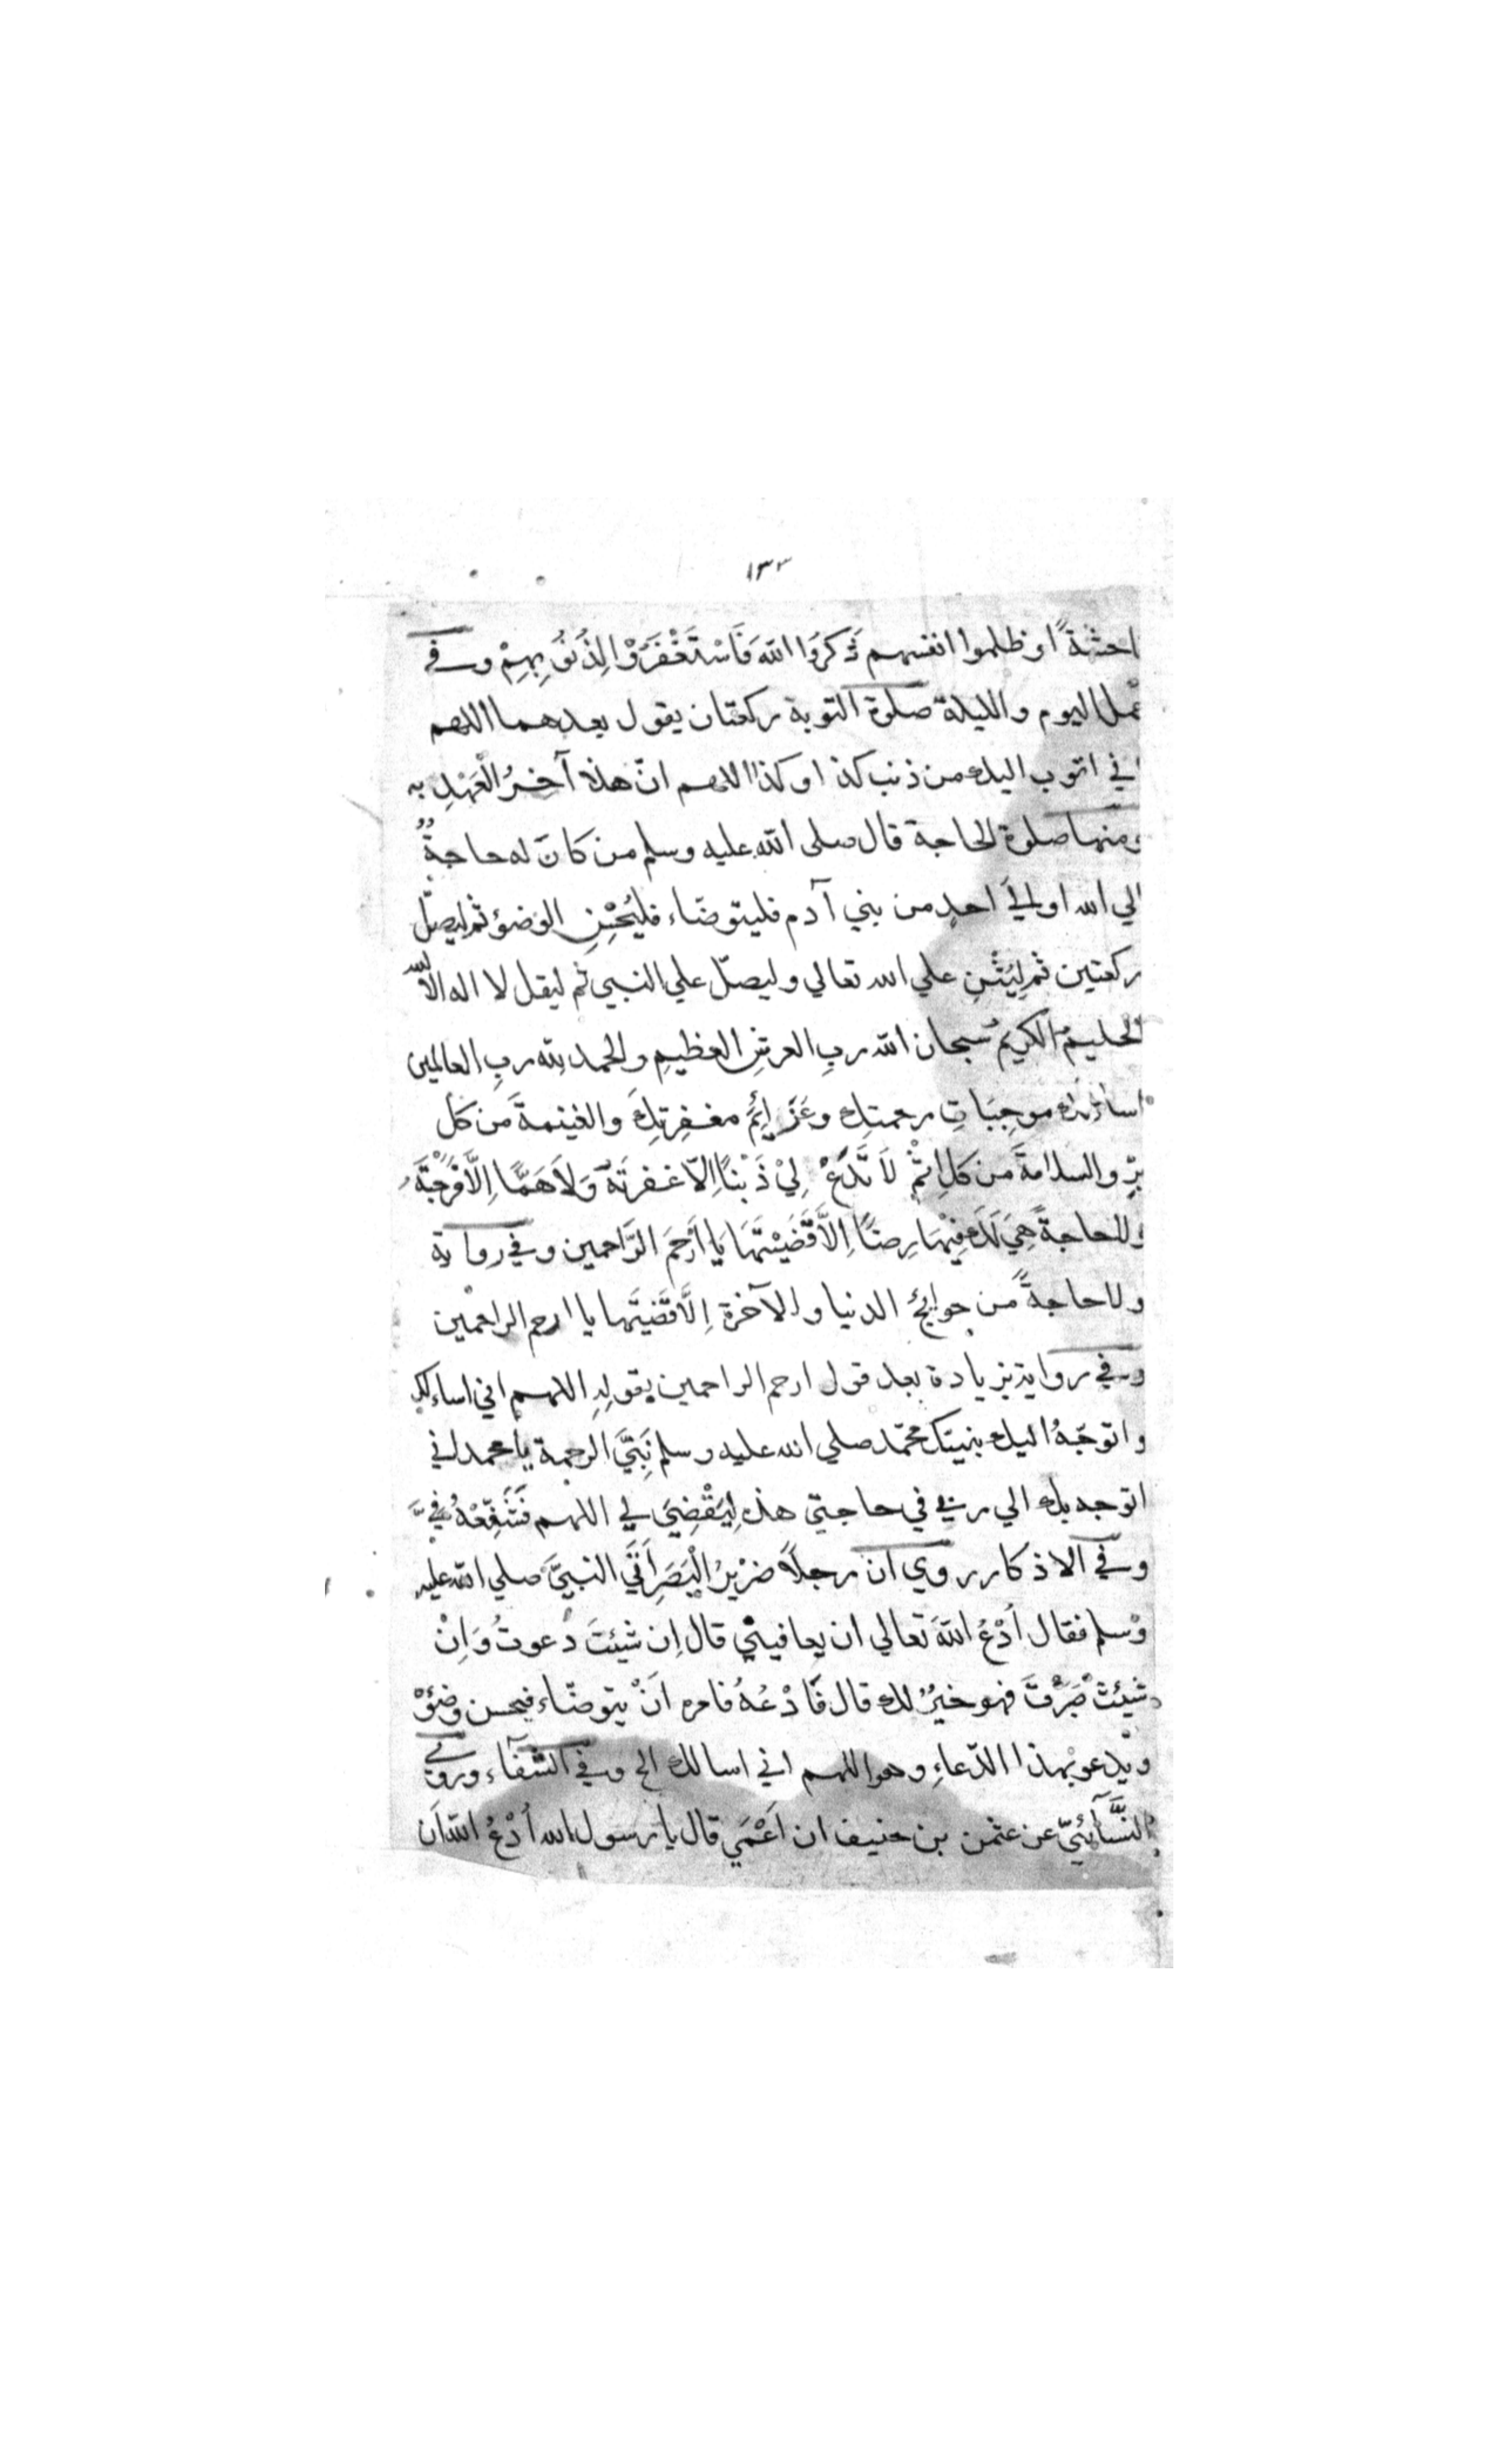 ١٣٣
احشةً او ظلموا انفسهم ذَكَرَوا اللهَ فَاسْتَغْفَرَوْا لِذُنُوبِهِمْ وفي
عمل اليوم والليلة صلوة التوبة ركعتان يقول بعدهما اللهم
اني اتوب اليك من ذنب كذا وكذا اللهم انّ هذا آخرُ الْعَهْدِ به
ومنها صلوة الحاجة قال صلى الله عليه وسلم من كانَ له حاجةٌ
الي الله او اليَ احدٍ من بني آدم فليتوضّاء فليُحْسِنِ الوضؤ ثم ليصلّ
ركعتين ثم لِيُثْنِ علي الله تعالي وليصلّ علي النبي ثم ليقل لا اله الّا الله
الحليمُ الكريمُ سُبحان الله ربِ العرشِ العظيمِ والحمد لله ربِ العالمين
اساءلك موجِبَاتِ رحمتِك وعَزَائِمَ مغفِرتِكَ والغنيمةَ من كل
برٍّ والسلامةَ من كلِ اِثْمٍ لَا تَدَعْ لِيْ ذَنْبًا اِلّا غفرتَهُ وَلَا هَمًّا اِلَّا فَرَّجْتَهُ
ولا حاجةً هِيَ لَكَ فِيْهَا رِضًا اِلَّا قَضَيْتَهَا يَا اَرْحَمَ الرَّاحمين وفي رواية
ولا حاجةً من حوائج الدنيا والآخرة اِلَّا قَضَيتَها يا ارحم الراحمين
وفي رواية بزيادة بعد قول ارحم الراحمين يقول اللهم اني اساءلك
واتوجّهُ اليك بنبيّك محمّد صلي الله عليه وسلم نَبِيَّ الرحمة يا محمد اني
اتوجه بك الي ربي في حاجتي هذه لِيَقْضِيَ لي اللهم فَشَفِّعْهُ فيَّ
وفي الاذكار روي ان رجلًا ضَرْيرُ الْبَصَرِ اَتَي النبيَّ صلي الله عليه
وسلم فقال اُدْعُ اللهَ تعالي ان يعافيني قال اِن شيئتَ دعوتُ وَاِنْ
شيئتَ صَبَرْتَ فهو خيرٌ لك قال فَادْعُهُ فامره اَنْ يتوضّاء فيحسن وضؤ
ويدعو بهذا الدّعاءِ وهو اللهم اني اسالك الخ وفي الشفآء وروي
النَّسَآئيّ عن عثمن بن حنيف ان اَعْمَي قال يا رسول الله اُدْعُ الله ان